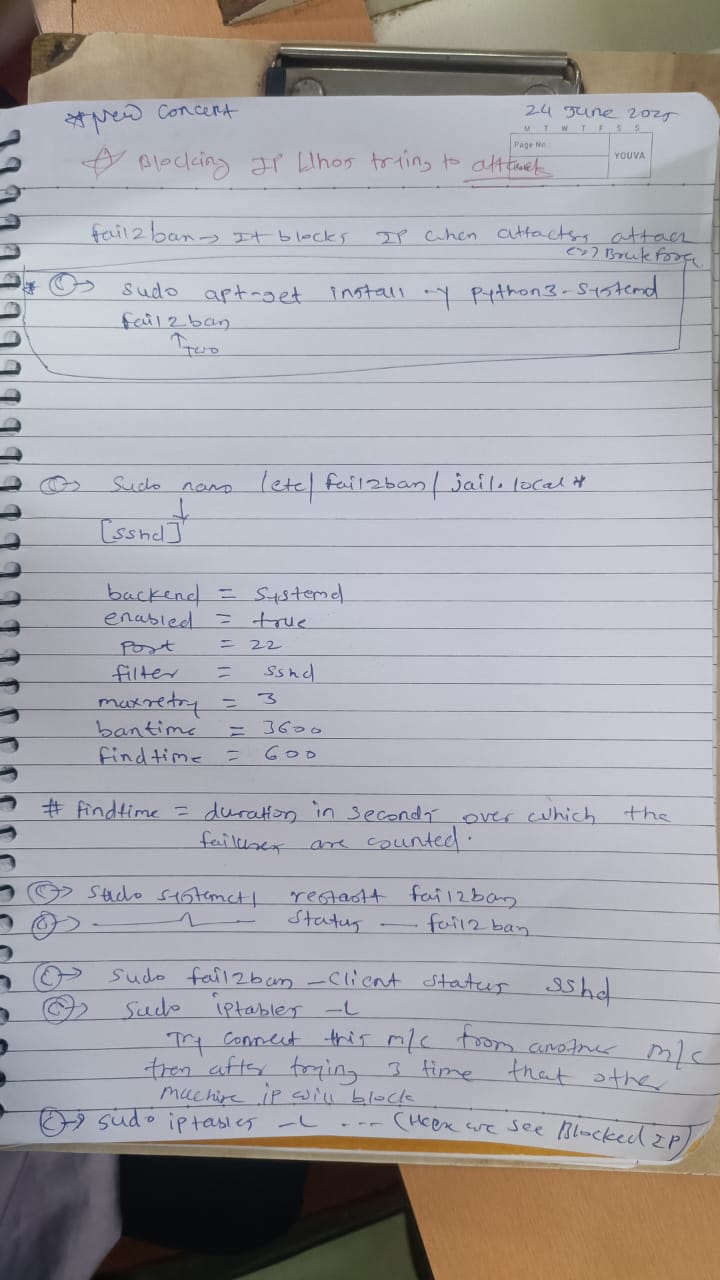 *New Concert
24 June 2025
M T W T F S S
Page No.:
YOUVA
☆ Blocking IP Whos trying to attack
fail2ban → It blocks IP when attacters attack
ex) Brute force
* (C)→ sudo apt-get install -y python3-systemd
fail2ban
↑ two
(C)→ sudo nano /etc/fail2ban/jail.local *
↓
[sshd]
backend = systemd
enabled = true
port = 22
filter = sshd
maxretry = 3
bantime = 3600
findtime = 600
# findtime = duration in seconds over which the
failures are counted.
(C)→ sudo systemctl restart fail2ban
(C)→ —〃— status — fail2ban
(C)→ sudo fail2ban-client status sshd
(C)→ sudo iptables -L
Try connect this m/c from another m/c
then after trying 3 time that other
machine ip will block
(C)→ sudo iptables -L --- (Here we see Blocked IP)